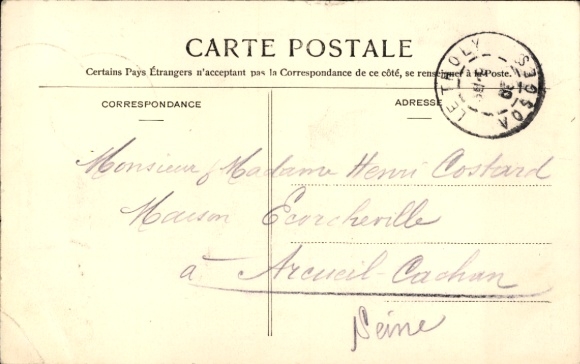 CARTE POSTALE
Certains Pays Étrangers n'acceptant pas la Correspondance de ce côté, se renseigner à la Poste.
CORRESPONDANCE
ADRESSE
LE THOLY
VOSGES
Monsieur & Madame Henri Costard
Maison Ecorcheville
à Arcueil-Cachan
Seine